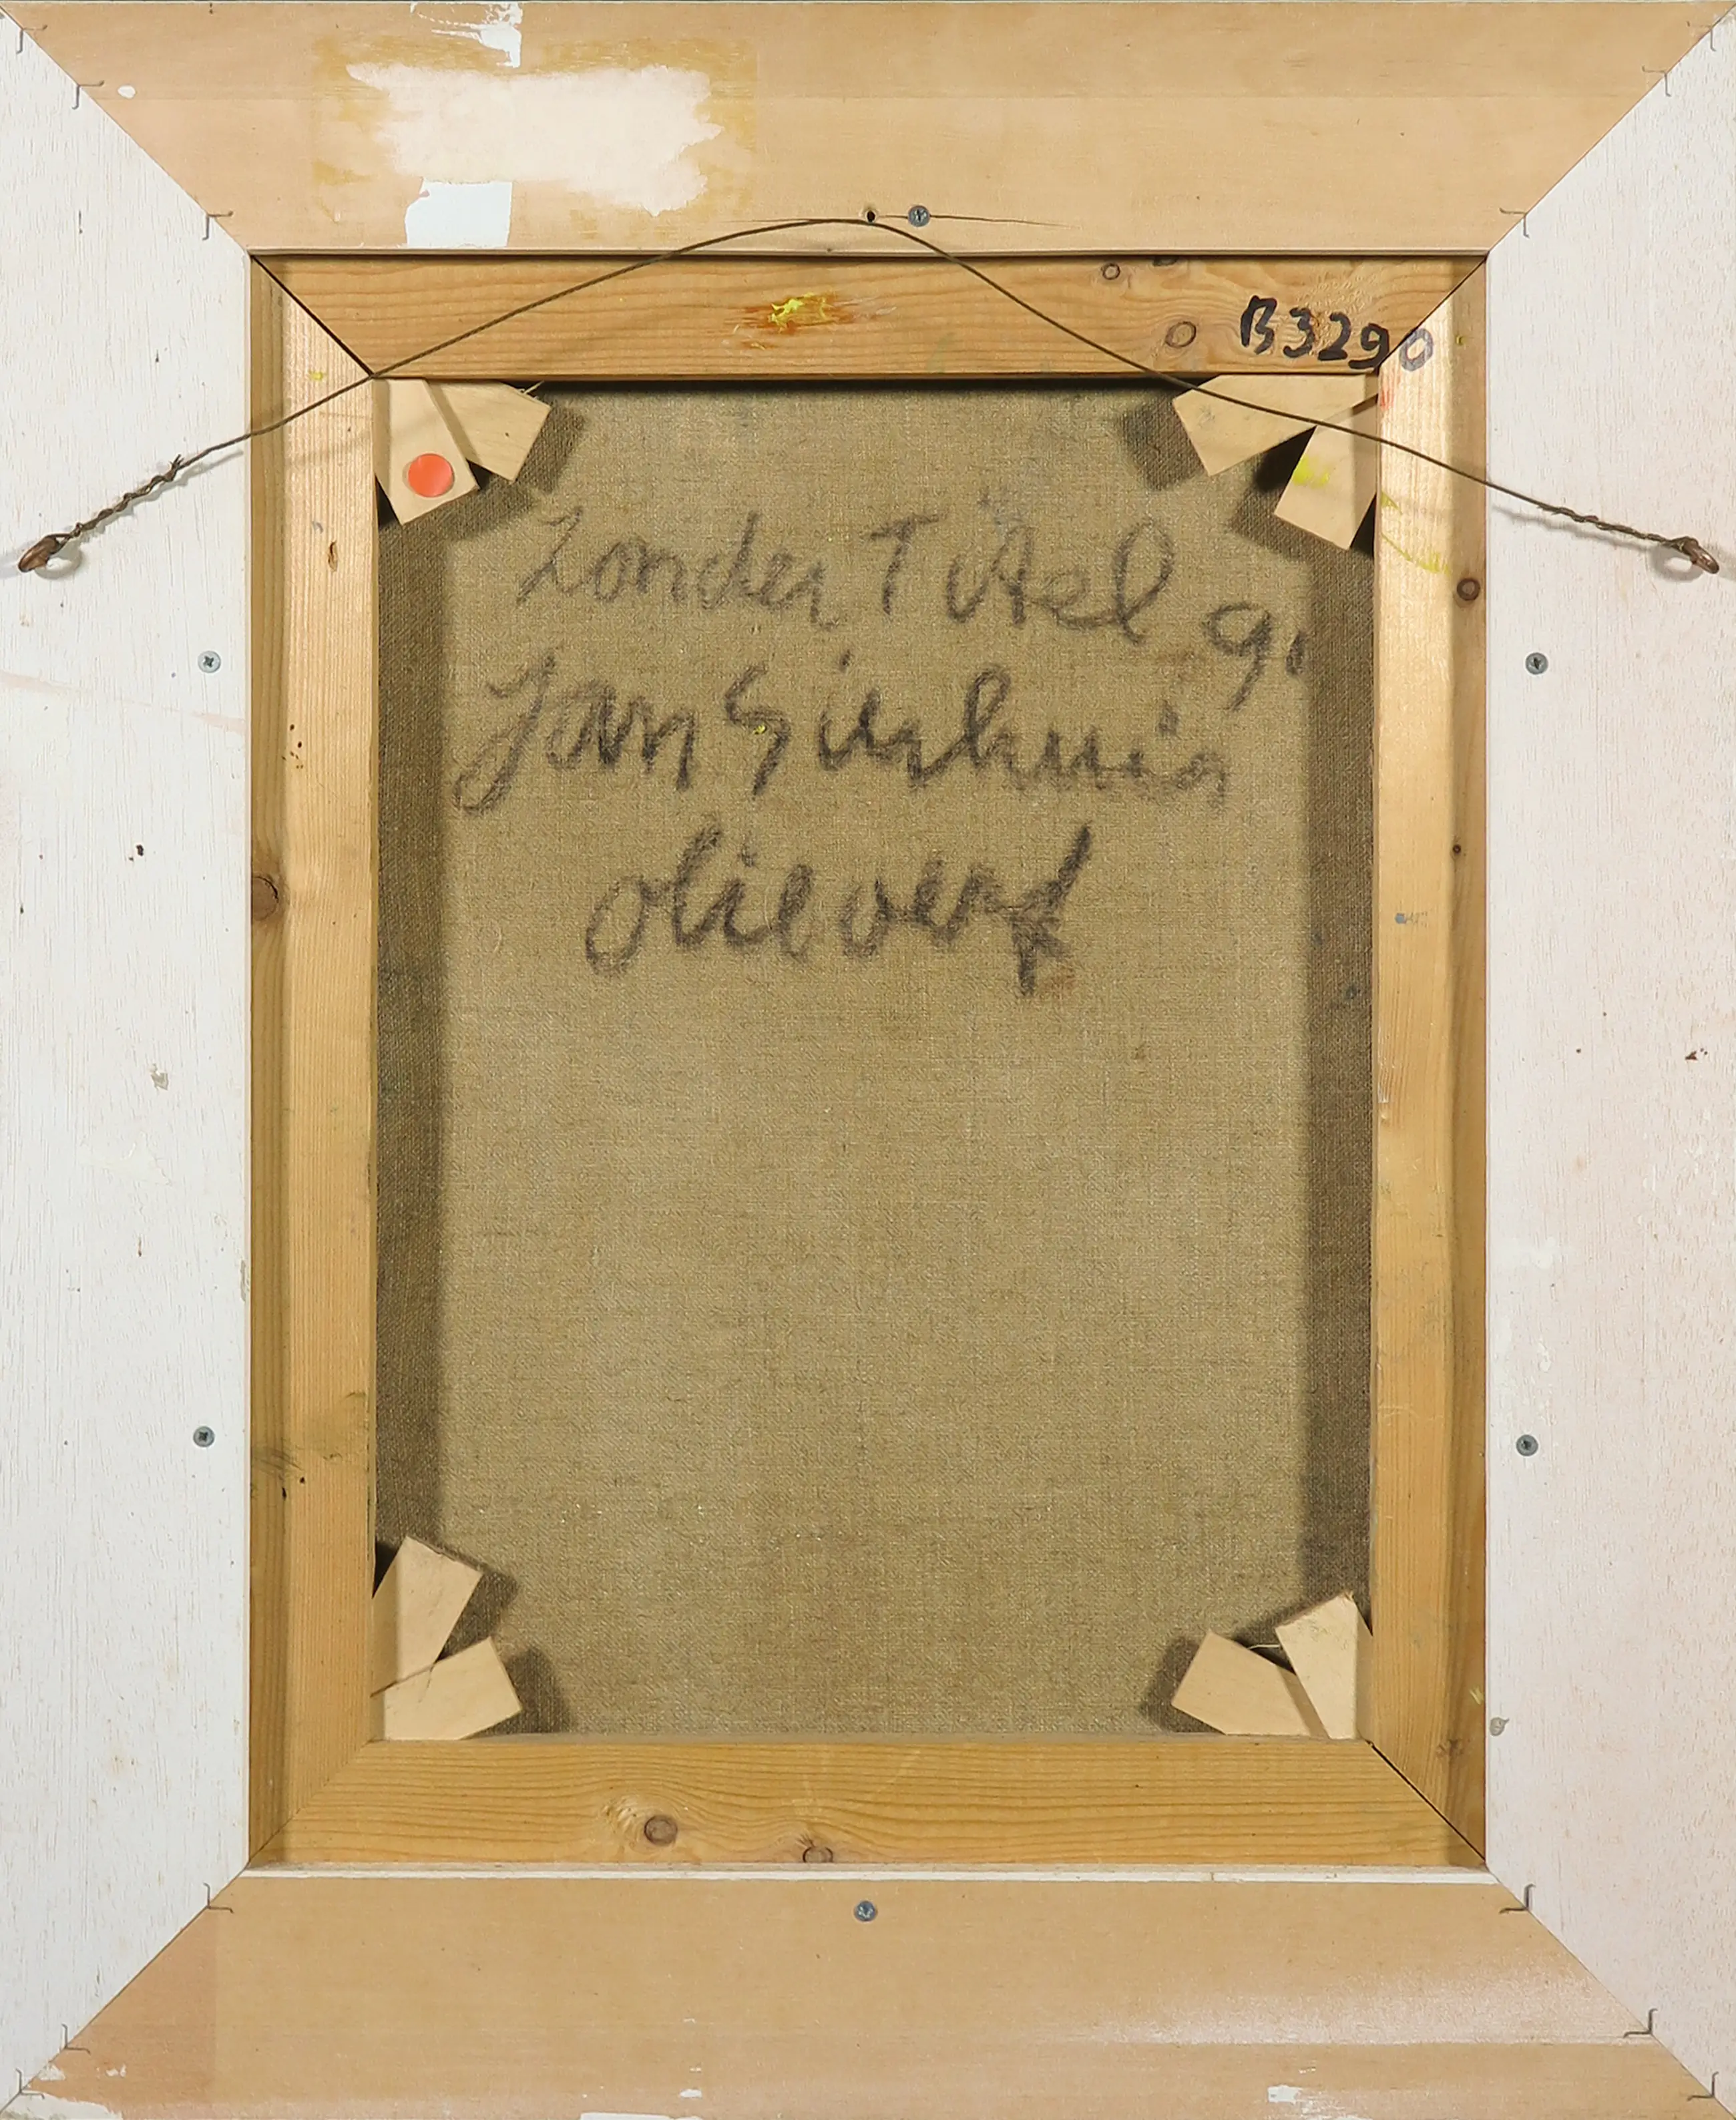 B3290
Zonder Titel 91
Jan Sierhuis
olieverf